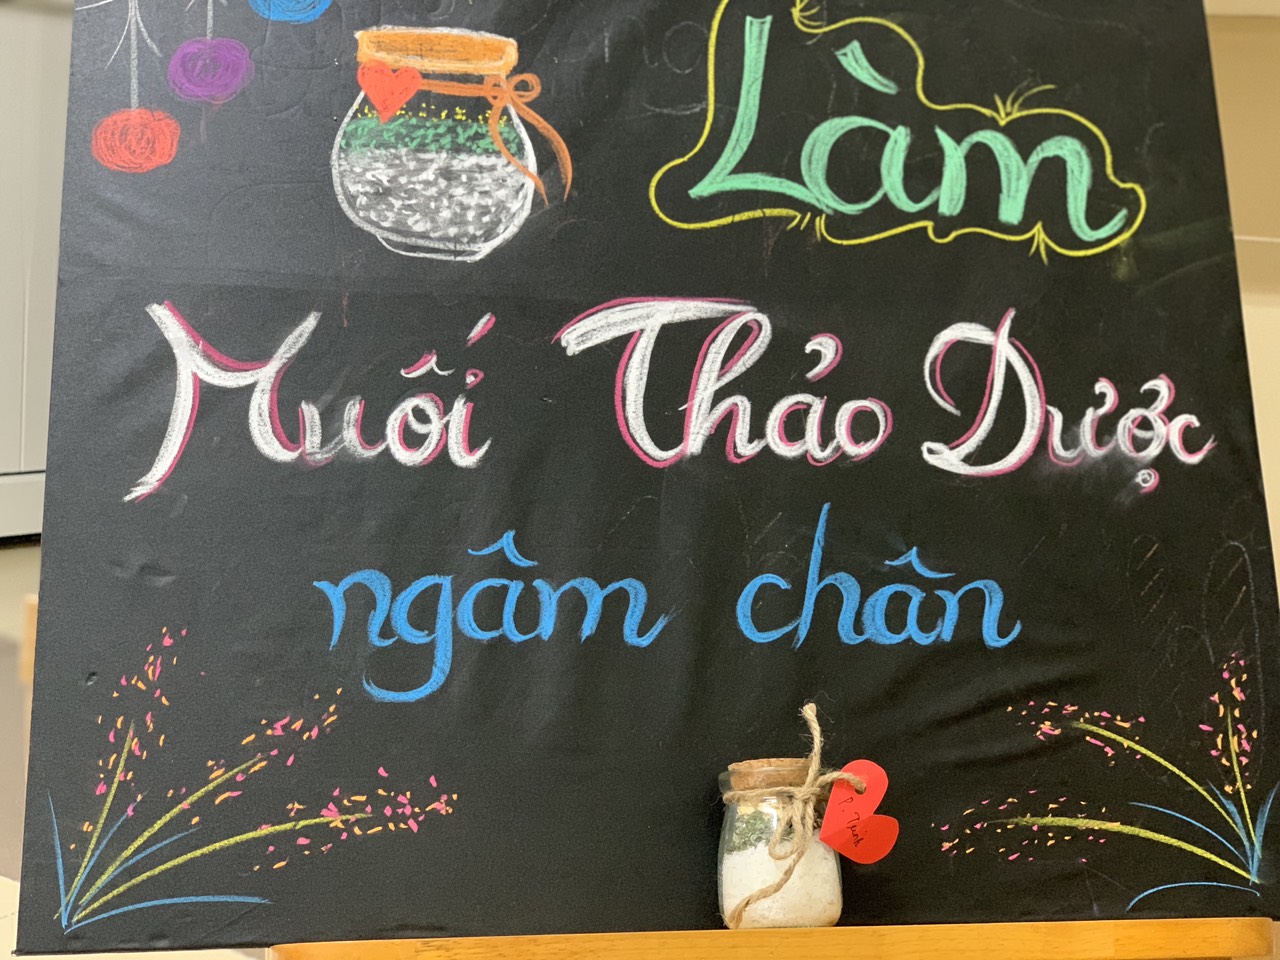 Làm
Muối Thảo Dược
ngâm chân
P. Trinh